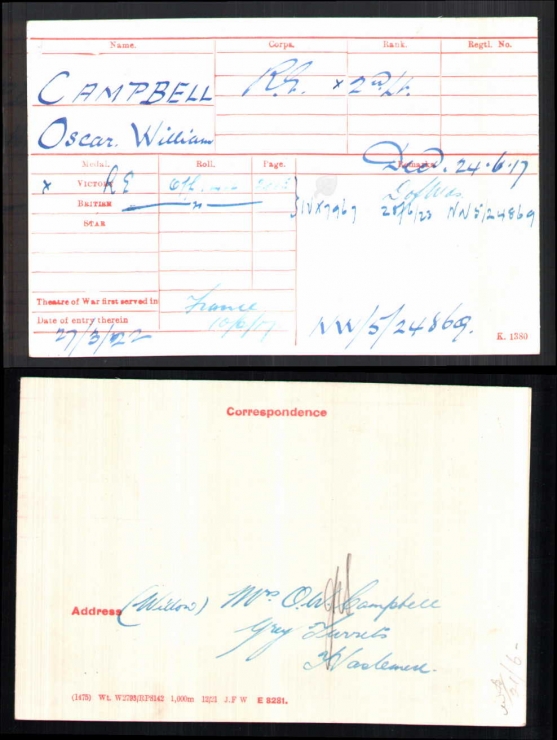 Name. Corps. Rank. Regtl. No.
CAMPBELL R.E. × 2nd Lt.
Oscar. William
Medal. Roll. Page. Remarks.
Died. 24.6.17
× VICTORY RE Off
BRITISH — „ — } IVX7967 NW5/24869
STAR
Theatre of War first served in France
Date of entry therein
27/3/22 NW/5/24869.
K. 1380
Correspondence
Address (Widow) Mrs O.W. Campbell
Grey Turrets
Haslemere.
(1475) Wt. W2793/RP8142 1,000m 12/21 J.F W E 8281.